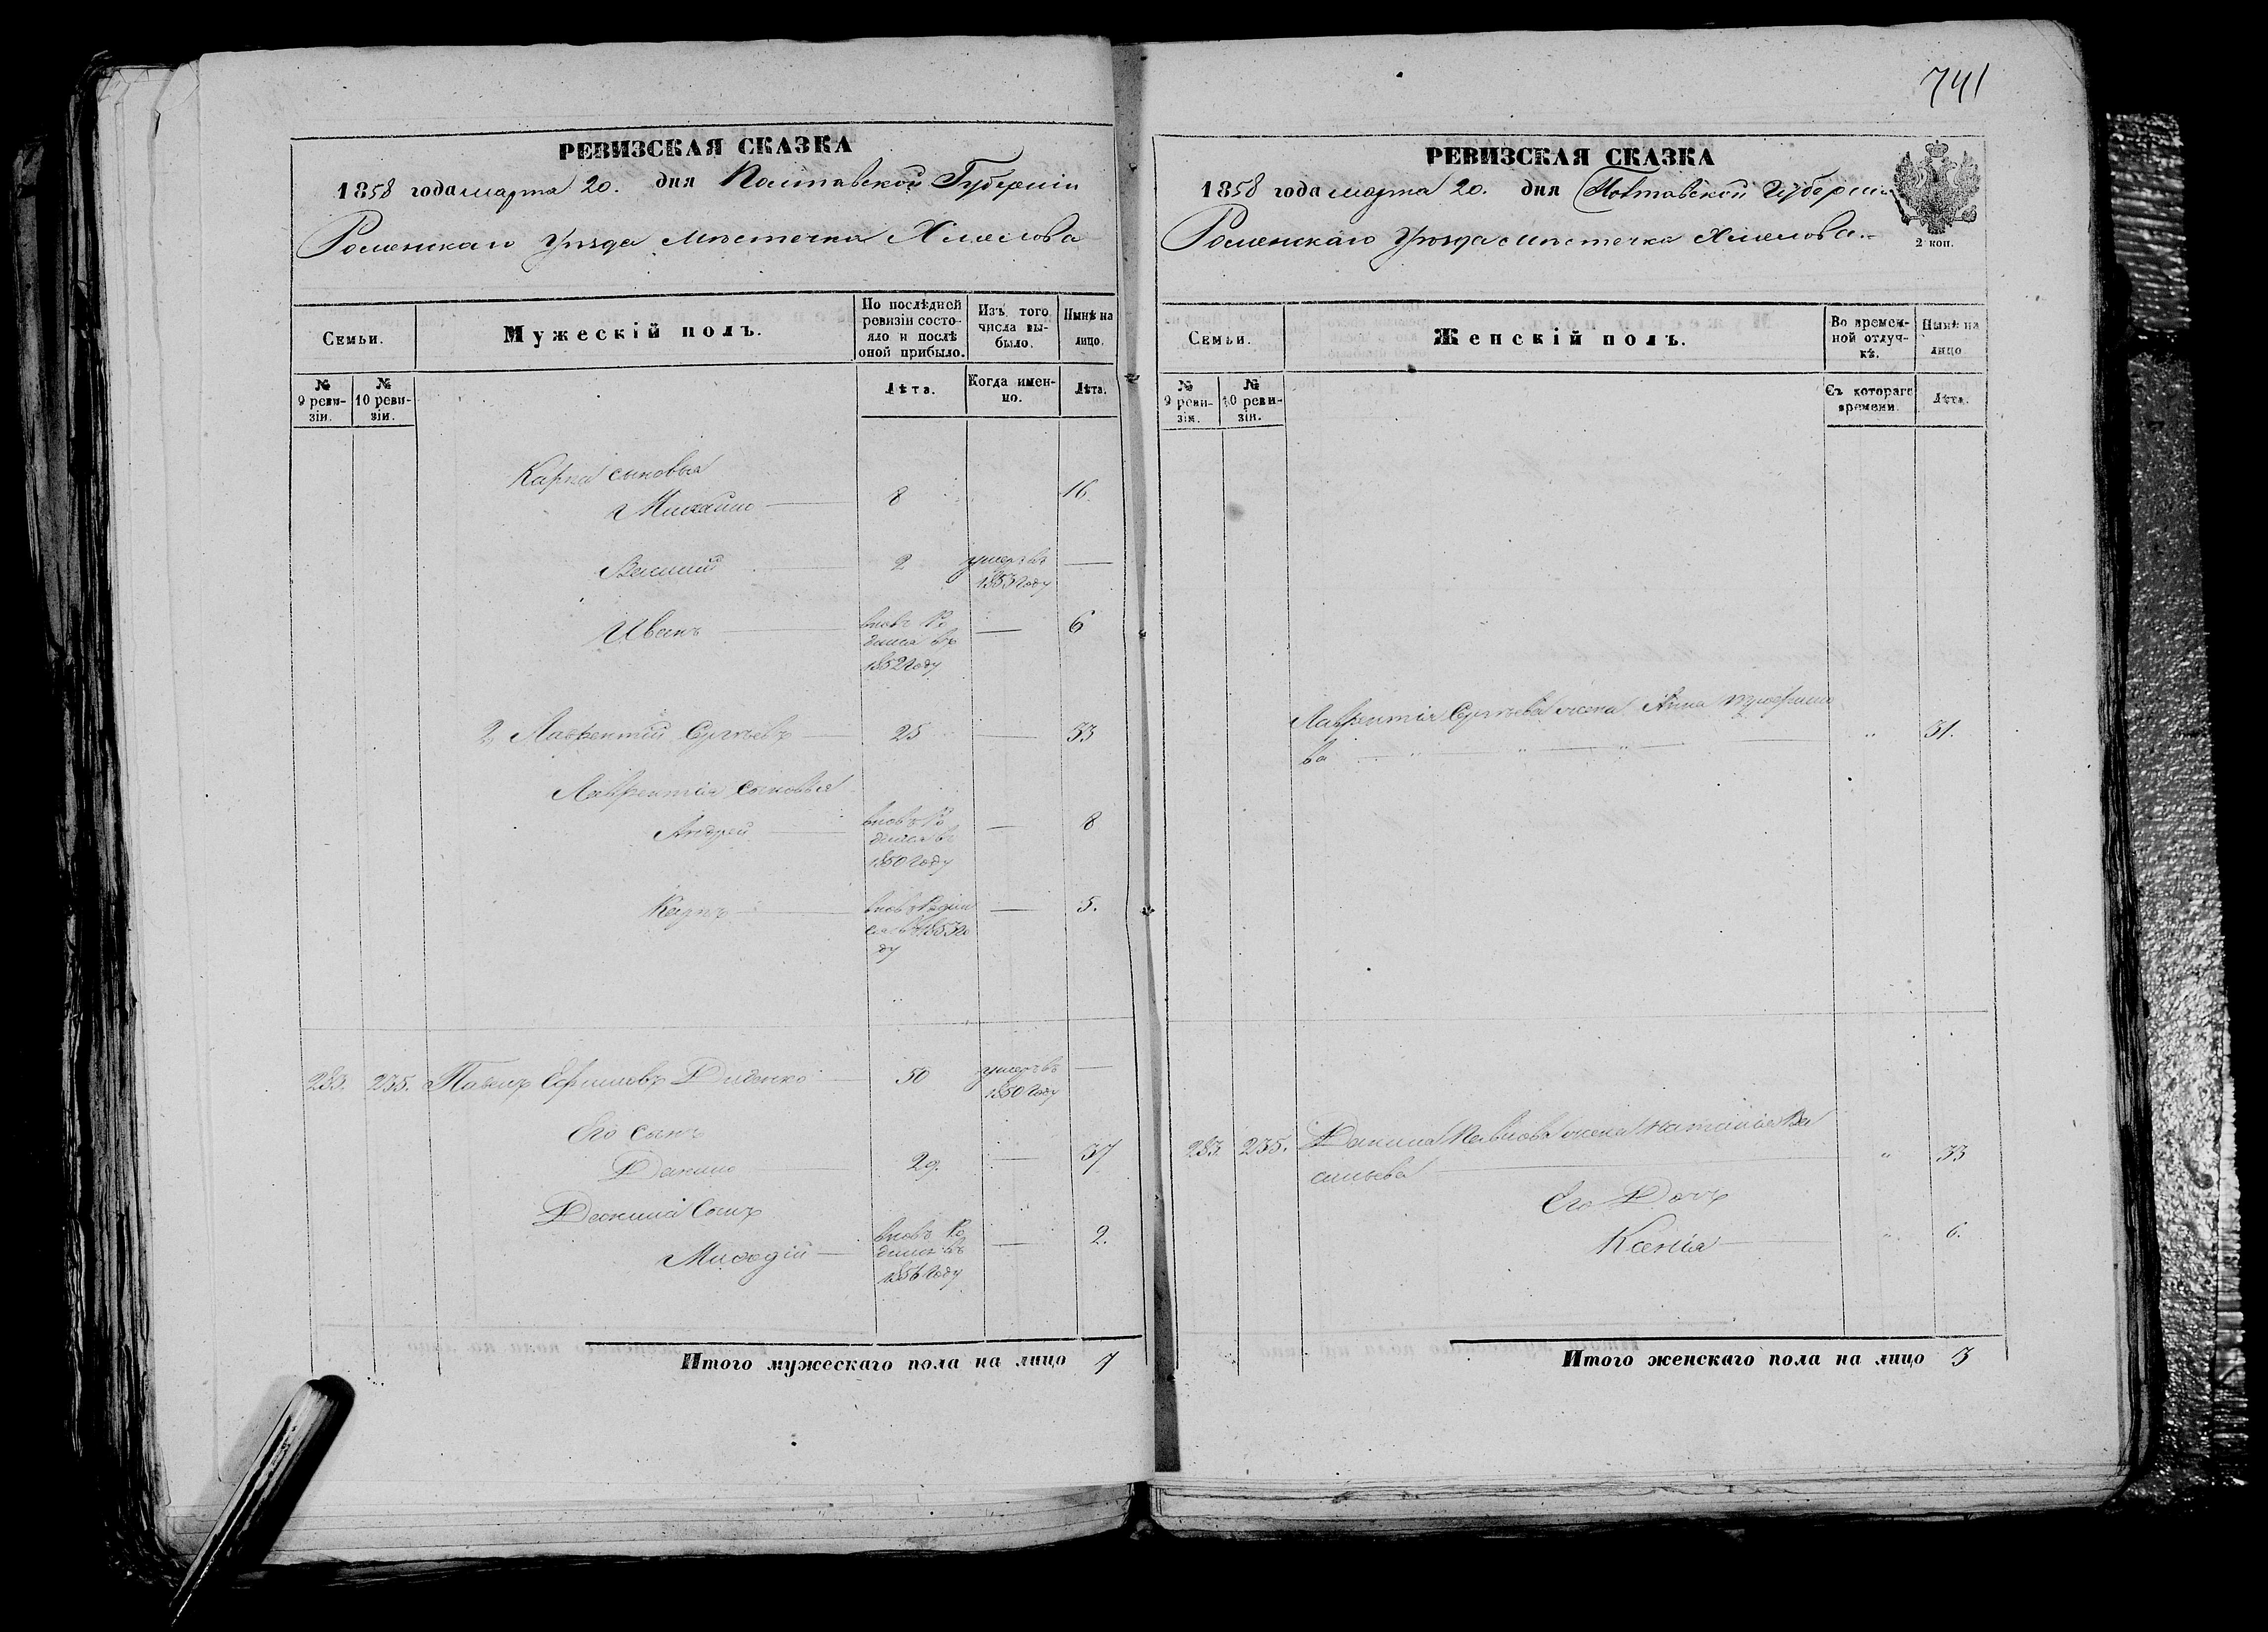 741
РЕВИЗСКАЯ СКАЗКА
1858 года марта 20. дня Полтавской Губерніи
Роменскаго Уѣзда Мѣстечка Хмелова
Семьи.
Мужескій полъ.
По послѣдней ревизіи состояло и послѣ оной прибыло.
Изъ того числа выбыло.
Нынѣ на лицо.
№ 9 ревизіи.
№ 10 ревизіи.
Лѣта.
Когда именно.
Лѣта.
Карпа сыновья
Михайло 8 16
Василий 2 умеръ въ
1853 году
Иванъ вновь Ро 6
дился въ
1852 году
2, Лаврентий Сергѣевъ 25 33
Лаврентія сыновья
Андрей вновь Ро 8
дился въ
1850 году
Карпъ вновь Родил 5.
ся въ 1853 го
ду
283. 235. Павелъ Ефимовъ Диденко 50 умеръ въ
1850 году
Его сынъ
Данило 29. 37
Данила Сынъ
Мифодій вновь Ро 2.
дился въ
1856 году
Итого мужескаго пола на лицо 7
РЕВИЗСКАЯ СКАЗКА
1858 года марта 20. дня Полтавской Губерніи
Роменскаго Уѣзда мѣстечка Хмелова.
2 коп.
Семьи.
Женскій полъ.
Во временной отлучкѣ.
Нынѣ на лицо
№ 9 ревизіи.
№ 10 ревизіи.
Съ котораго времени.
Лѣта.
Лаврентія Сергѣева жена Анна
ва 31.
283. 235. Данила Павлова жена Наталія Ва
сильева 33
Его Дочь
Ксенія 6.
Итого женскаго пола на лицо 3